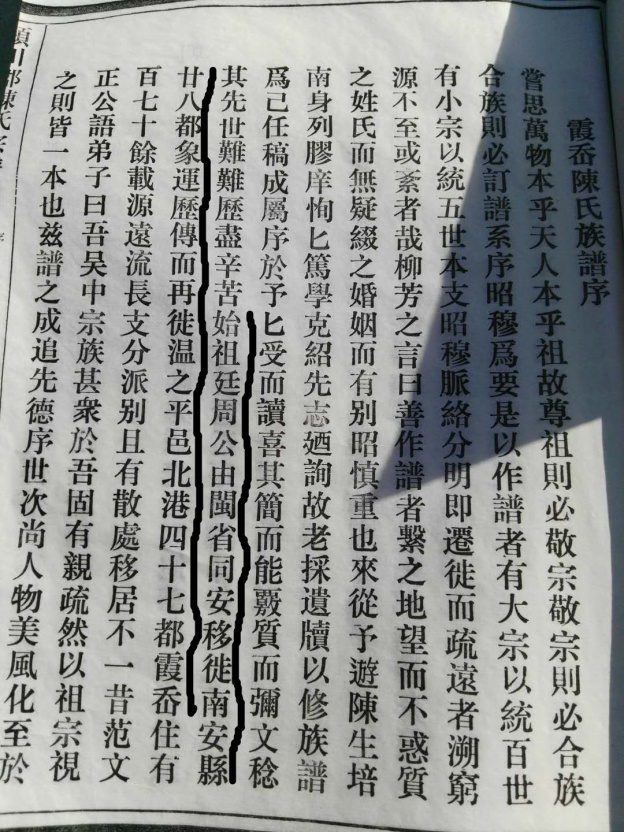 霞岙陳氏族譜序
嘗思萬物本乎天人本乎祖故尊祖則必敬宗敬宗則必合族
合族則必訂譜系序昭穆爲要是以作譜者有大宗以統百世
有小宗以統五世本支昭穆脈絡分明即遷徙而疏遠者溯窮
源不至或紊者哉柳芳之言曰善作譜者繫之地望而不惑質
之姓氏而無疑綴之婚姻而有别昭慎重也來從予遊陳生培
南身列膠庠恂匕篤學克紹先志廼詢故老採遺牘以修族譜
爲己任稿成屬序於予匕受而讀喜其簡而能覈質而彌文稔
其先世難難歷盡辛苦始祖廷周公由閩省同安移徙南安縣
廿八都象運歷傳而再徙温之平邑北港四十七都霞岙住有
百七十餘載源遠流長支分派别且有散處移居不一昔范文
正公語弟子曰吾吴中宗族甚衆於吾固有親疏然以祖宗視
之則皆一本也兹譜之成追先德序世次尚人物美風化至於
川郡陳氏